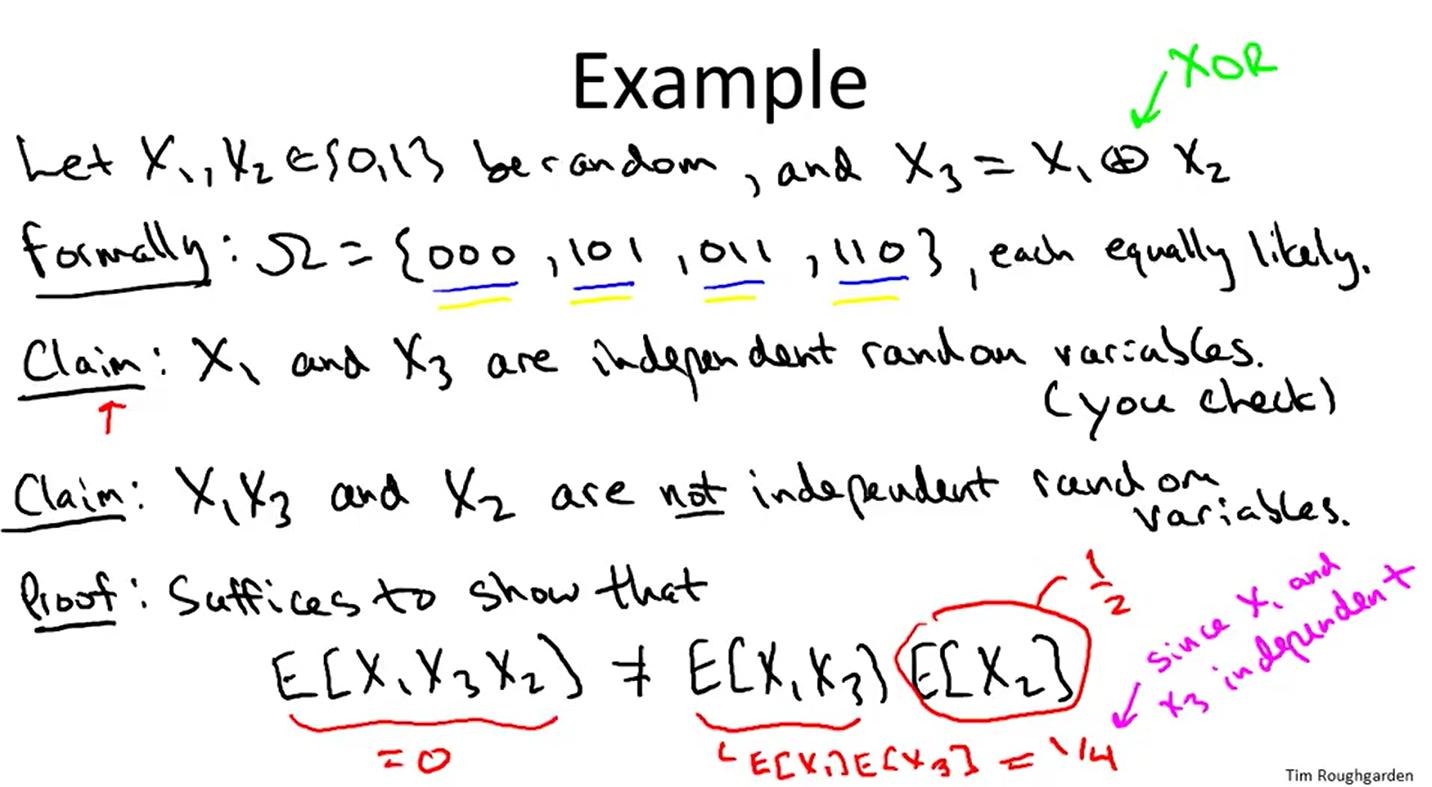 Example
XOR
Let X₁, X₂ ∈ {0,1} be random, and X₃ = X₁ ⊕ X₂
Formally: Ω = {000, 101, 011, 110}, each equally likely.
Claim: X₁ and X₃ are independent random variables.
(you check)
Claim: X₁X₃ and X₂ are not independent random
variables.
Proof: Suffices to show that
1/2
since X₁ and
X₃ independent
E[X₁X₃X₂] ≠ E[X₁X₃] E[X₂]
= 0
= E[X₁]E[X₃] = 1/4
Tim Roughgarden